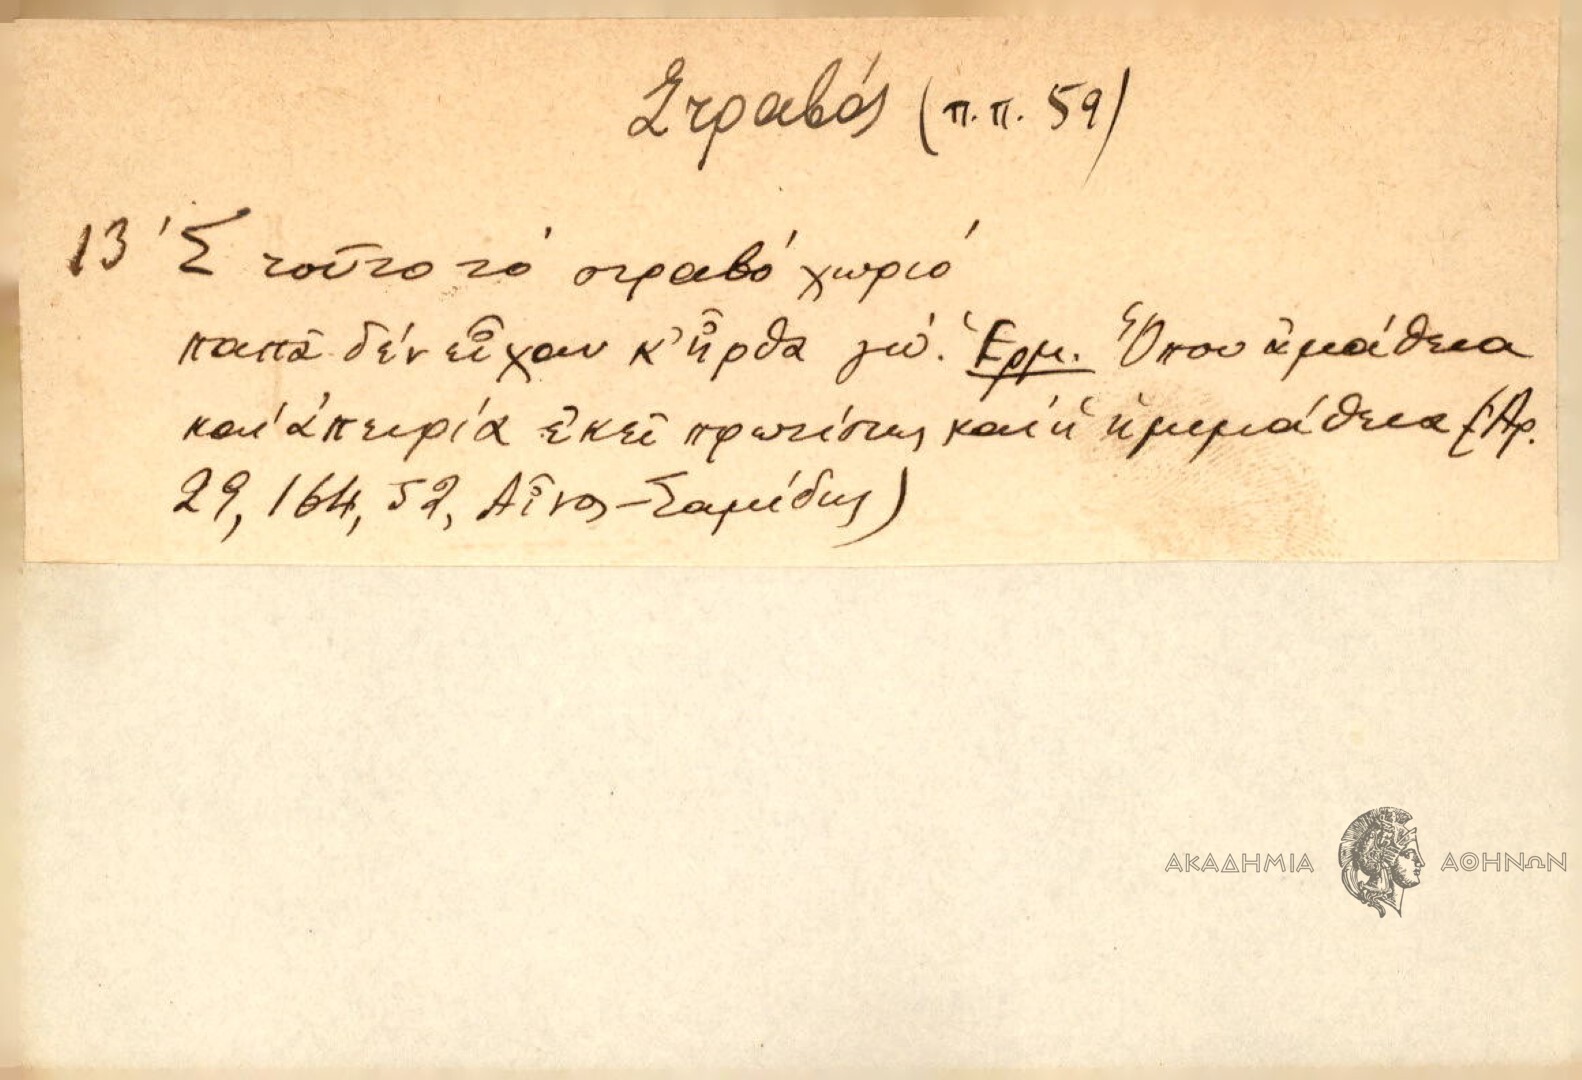 Στραβός (π.π. 59)
13 'Σ τοῦτο τὸ στραβὸ χωριὸ
παπᾶ δέν εἶχαν κ' ἦρθα γώ. Ἑρμ. Ὅπου ἀμάθεια
καὶ ἀπειρία ἐκεῖ πρωτίστως καὶ ἡ ἡμιμάθεια (Ἀρ.
29, 164, 52, Αἶνος - Σαμίδης)
ΑΚΑΔΗΜΙΑ ΑΘΗΝΩΝ